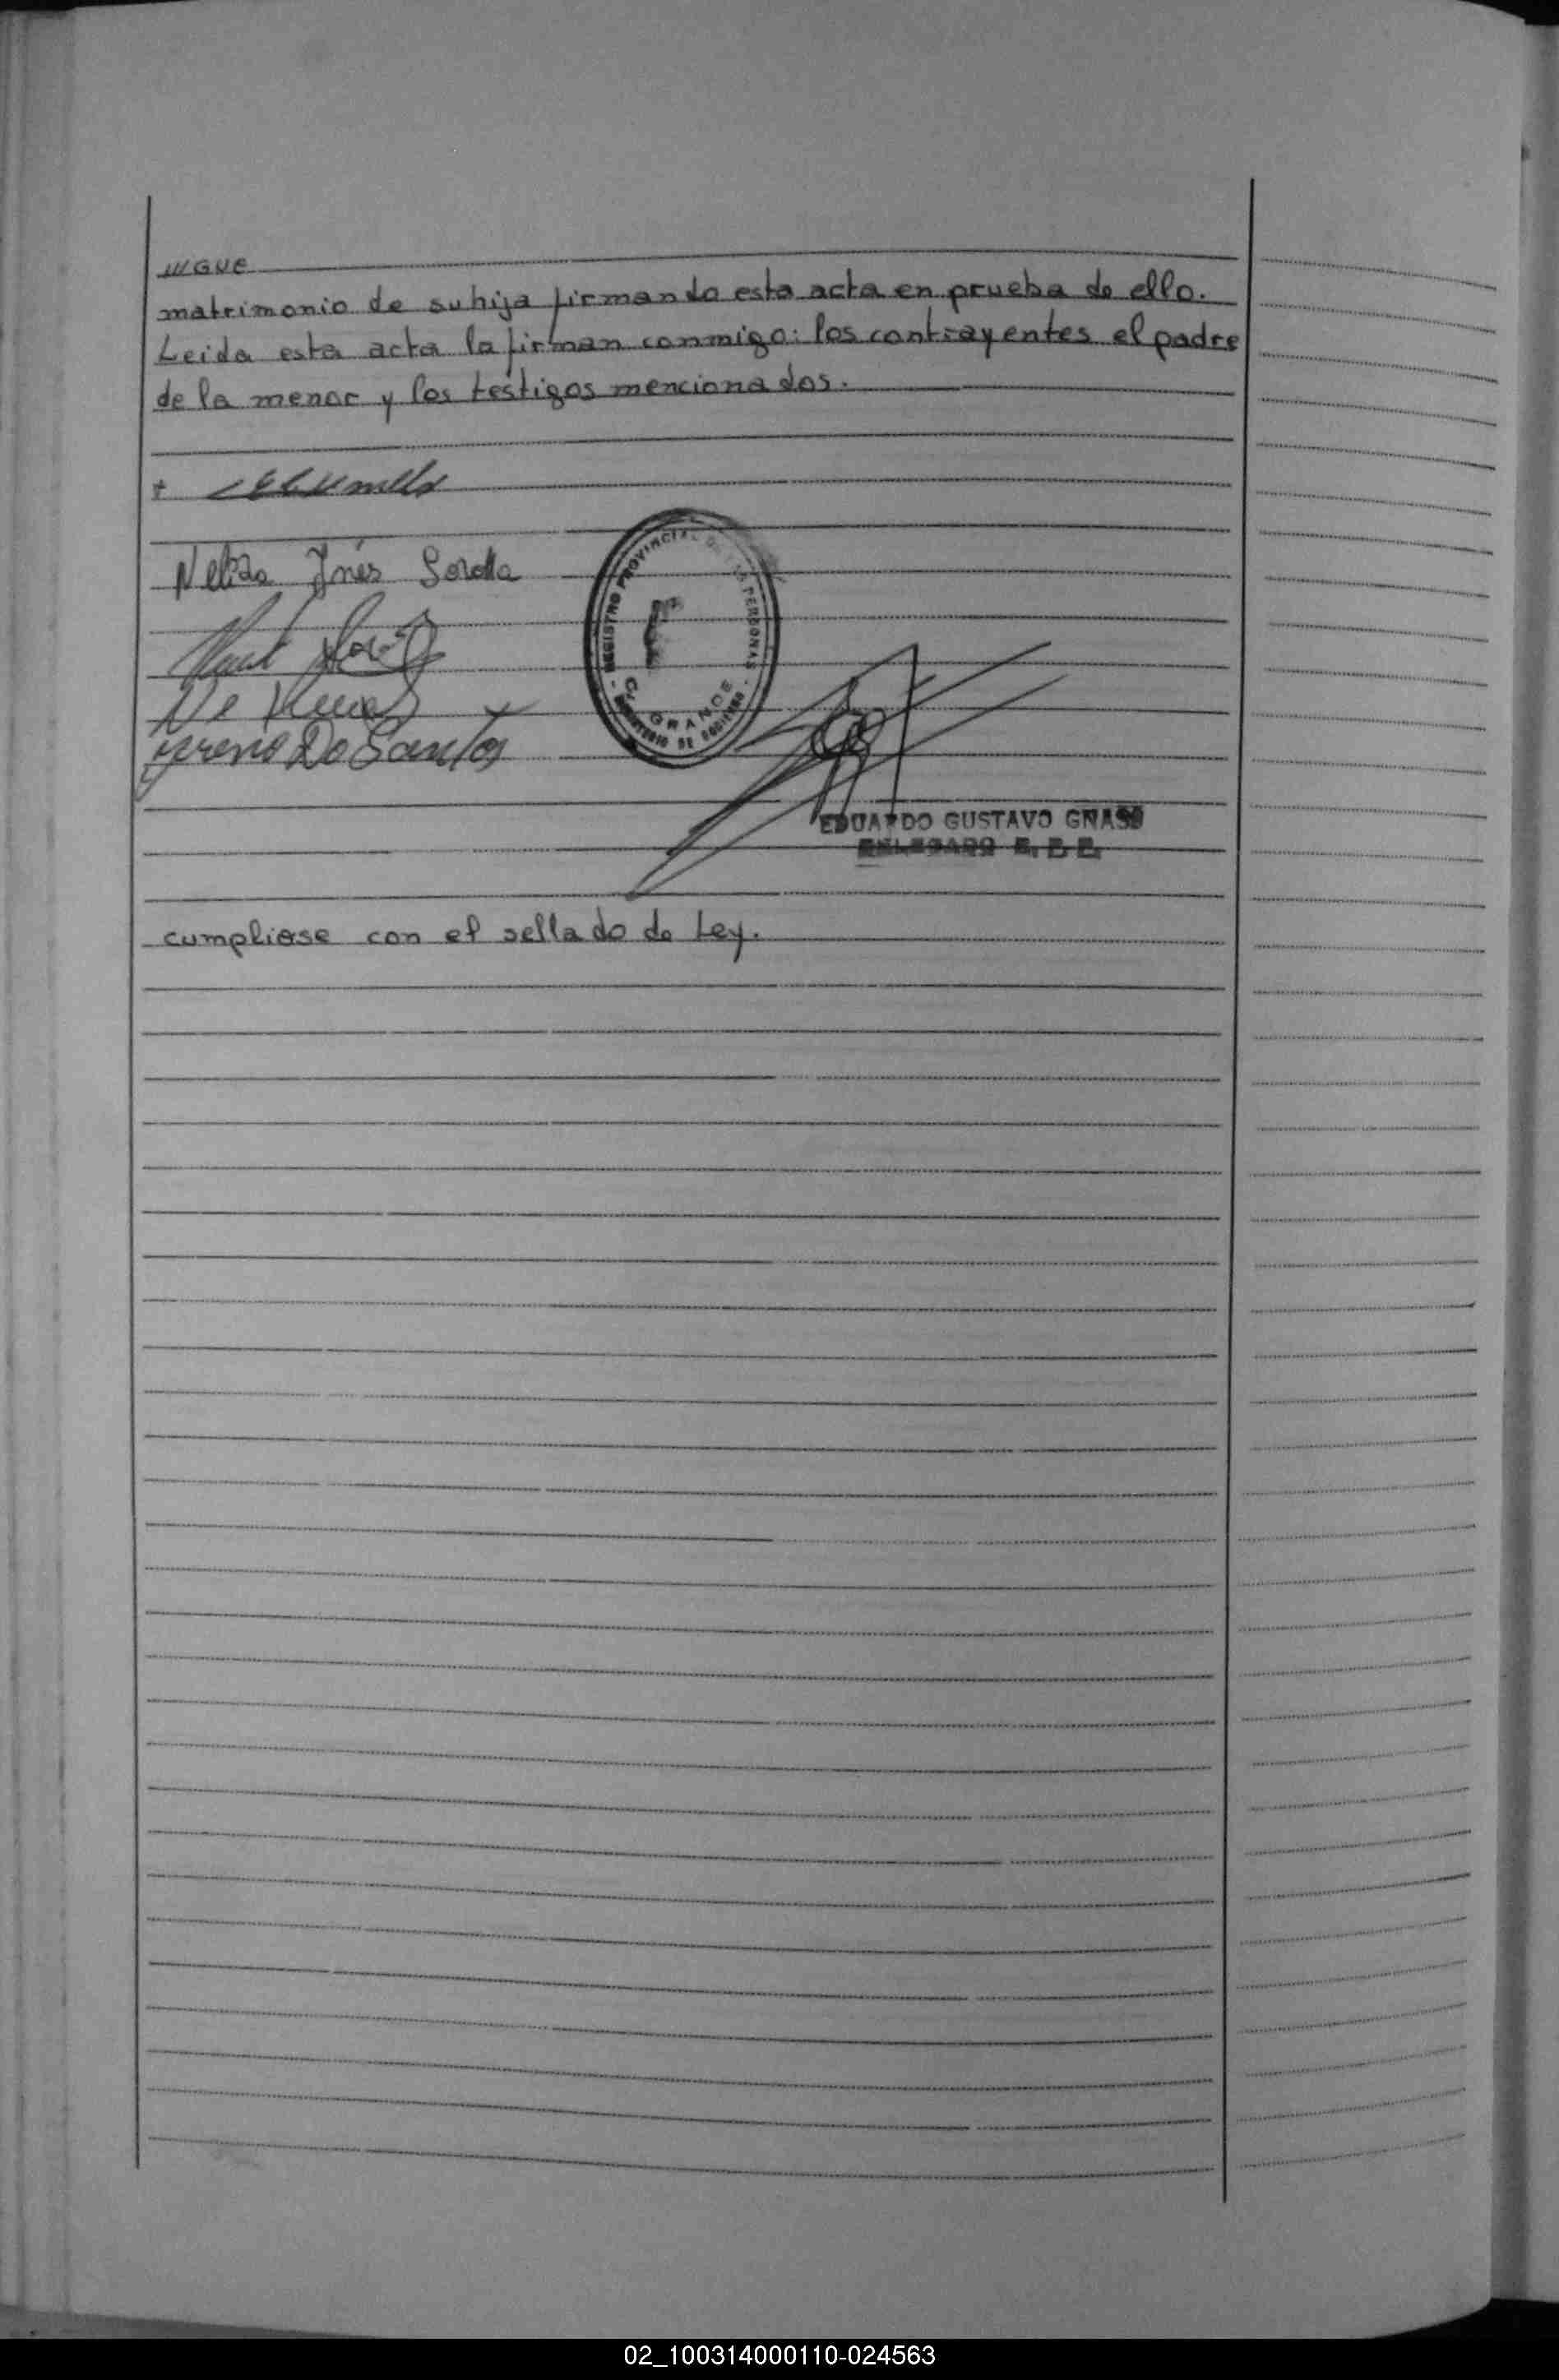 ///GUE
matrimonio de su hija firmando esta acta en prueba de ello.
Leida esta acta la firman conmigo: los contrayentes el padre
de la menor y los testigos mencionados.
Nelida Inés
REGISTRO PROVINCIAL DE LAS PERSONAS
GRANDE
MINISTERIO DE GOBIERNO
Do Santos
EDUARDO GUSTAVO GRASO
DELEGADO R. P. P.
cumpliose con el sellado de Ley.
02_100314000110-024563